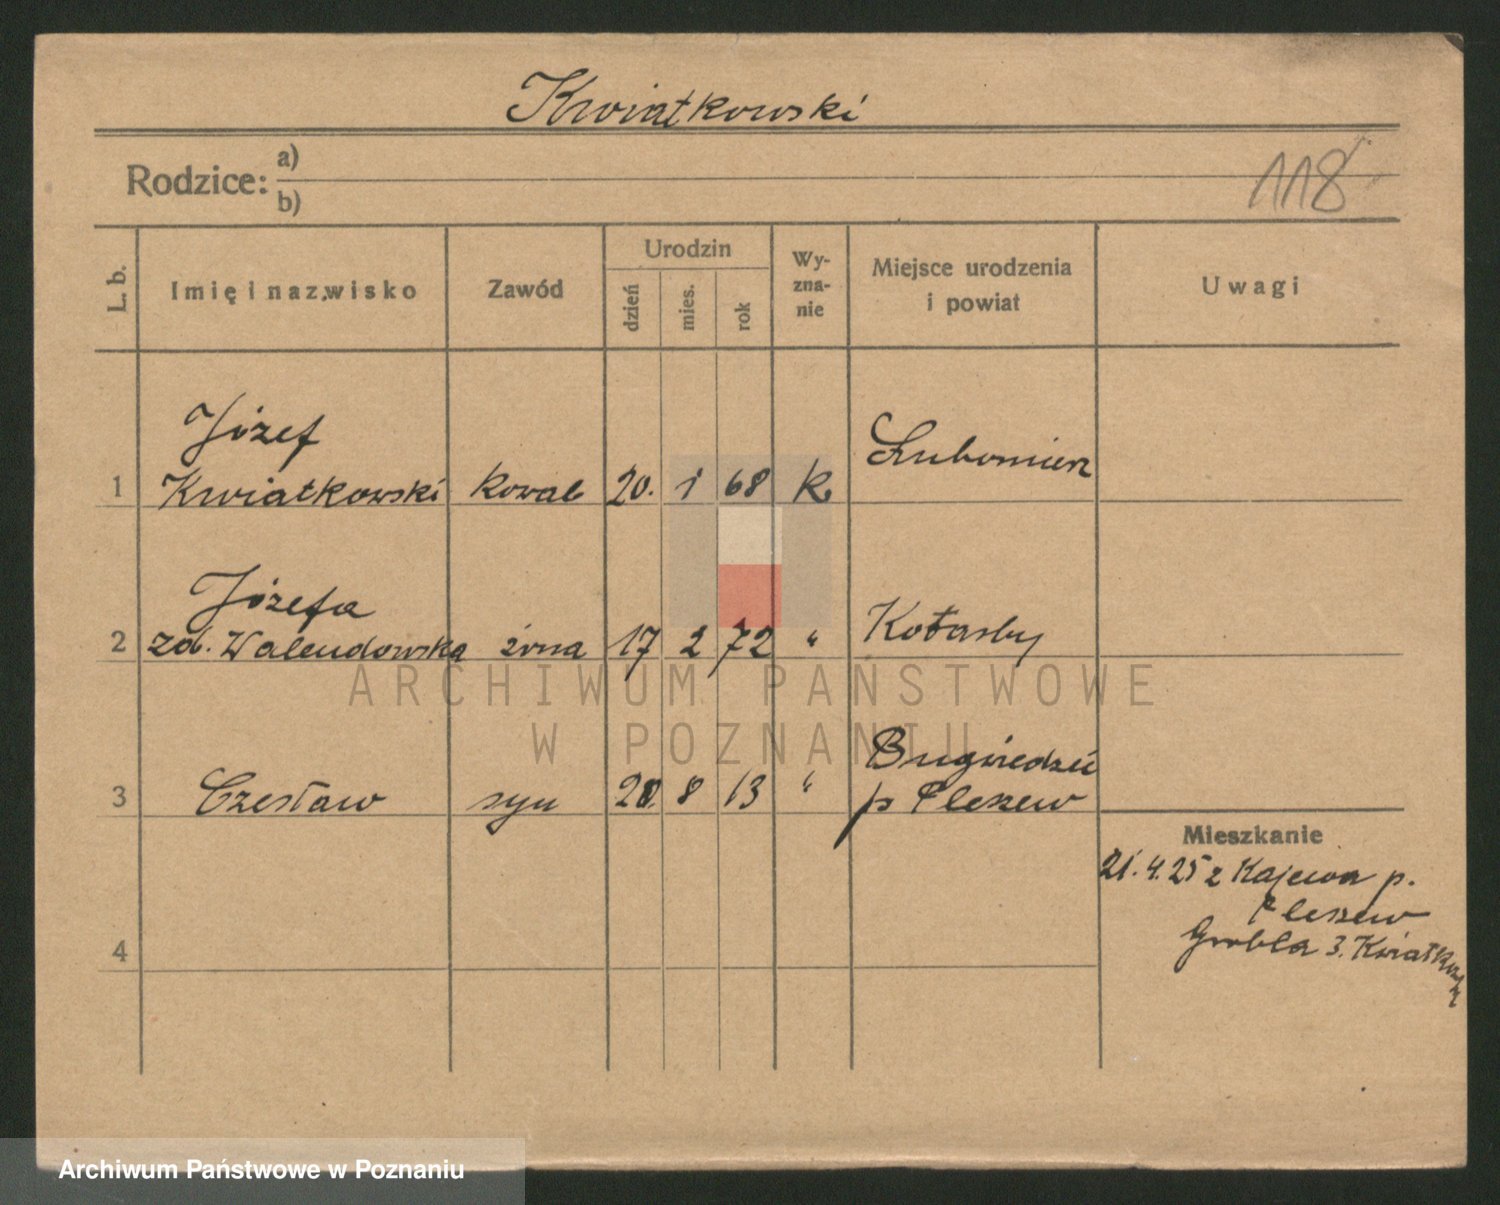 Kwiatkowski
118
Rodzice: a)
b)
L. b.
Imię i nazwisko
Zawód
Urodzin
dzień
mies.
rok
Wy-
zna-
nie
Miejsce urodzenia
i powiat
Uwagi
Józef
1 Kwiatkowski kowal 20. 1 68 k Lubomierz
Józefa
2 zd. Walendowska żona 17 2 72 "
3 Czesław syn 8 13 "
p Pleszew
Mieszkanie
21.4.25 z Kajewa p.
Pleszew
Grobla 3.
4
ARCHIWUM PAŃSTWOWE
W POZNANIU
Archiwum Państwowe w Poznaniu